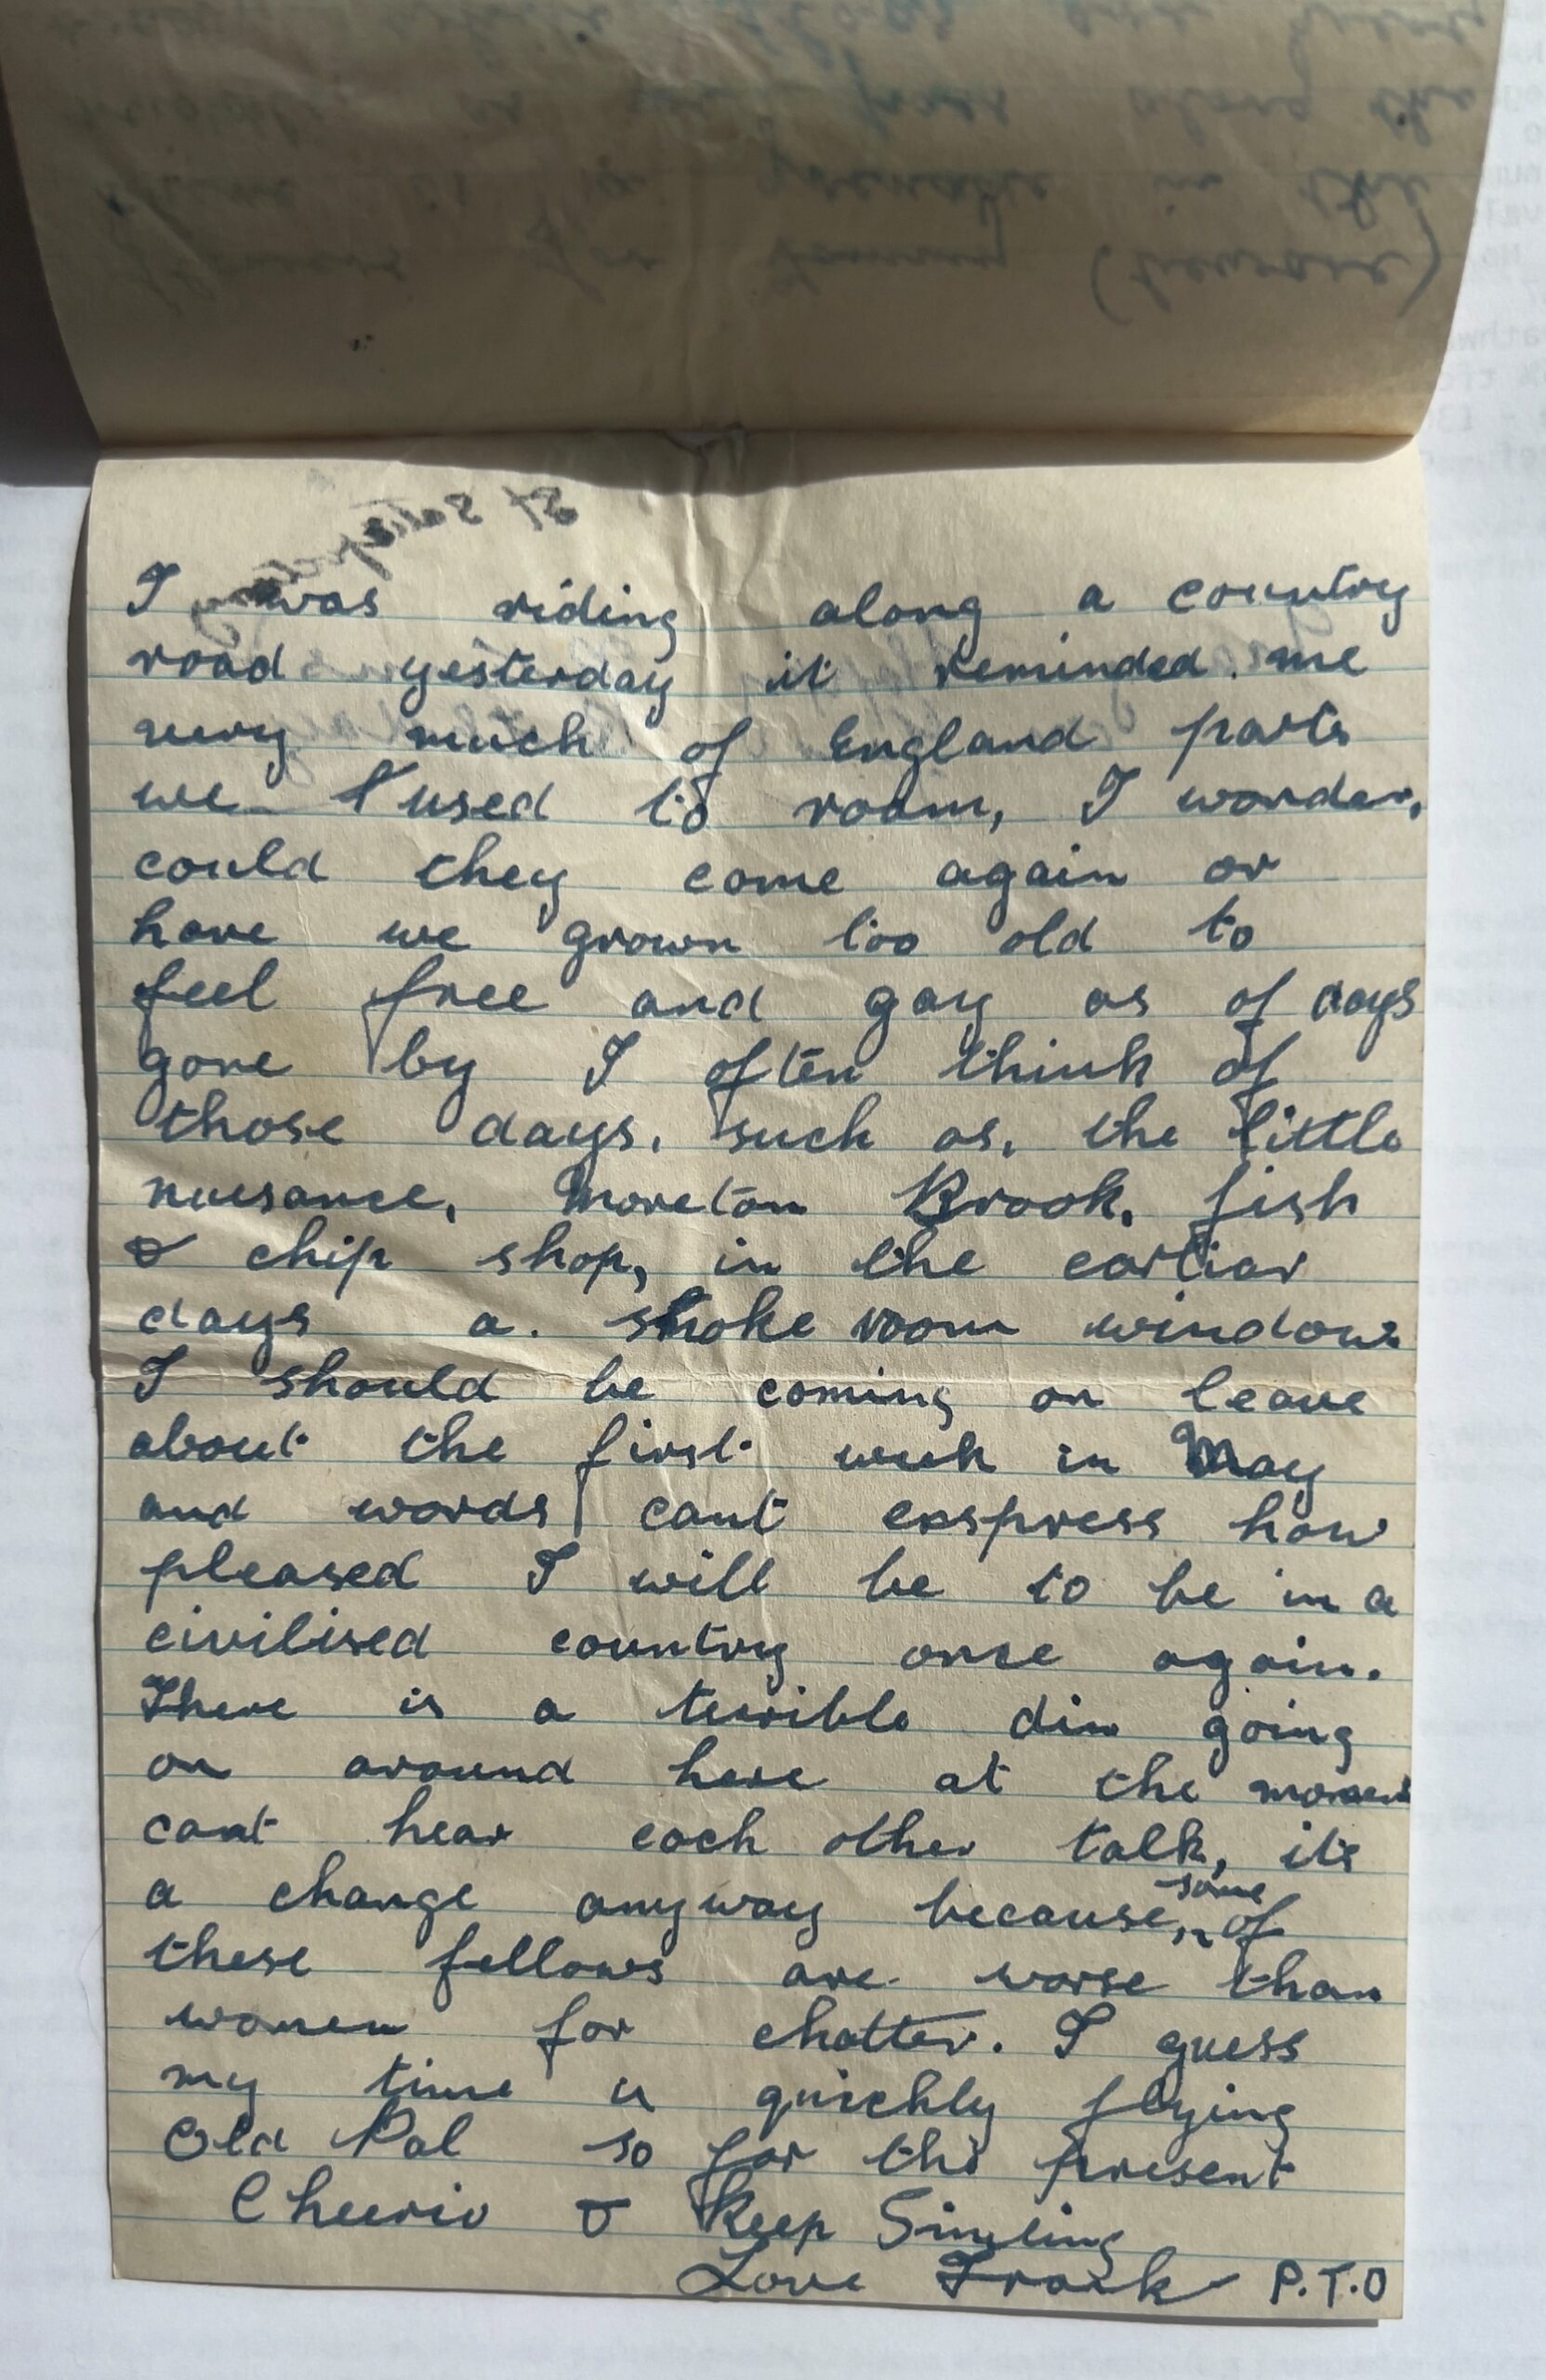 I was riding along a country
road yesterday it reminded me
very much of England parts
we used to roam, I wonder,
could they come again or
have we grown too old to
feel free and gay as of days
gone by I often think of
those days. such as. the little
nuisance, Moreton Brook, fish
& chip shop, in the earlier
days a. smoke room window
I should be coming on leave
about the first week in May
and words cant exspress how
pleased I will be to be in a
civilised country once again.
There is a terrible din going
on around here at the moment
cant hear each other talk, its
a change anyway because some of
these fellows are worse than
women for chatter. I guess
my time is quickly flying
Old Pal so for the present
Cheerio & Keep Smiling
Love Frank P.T.O